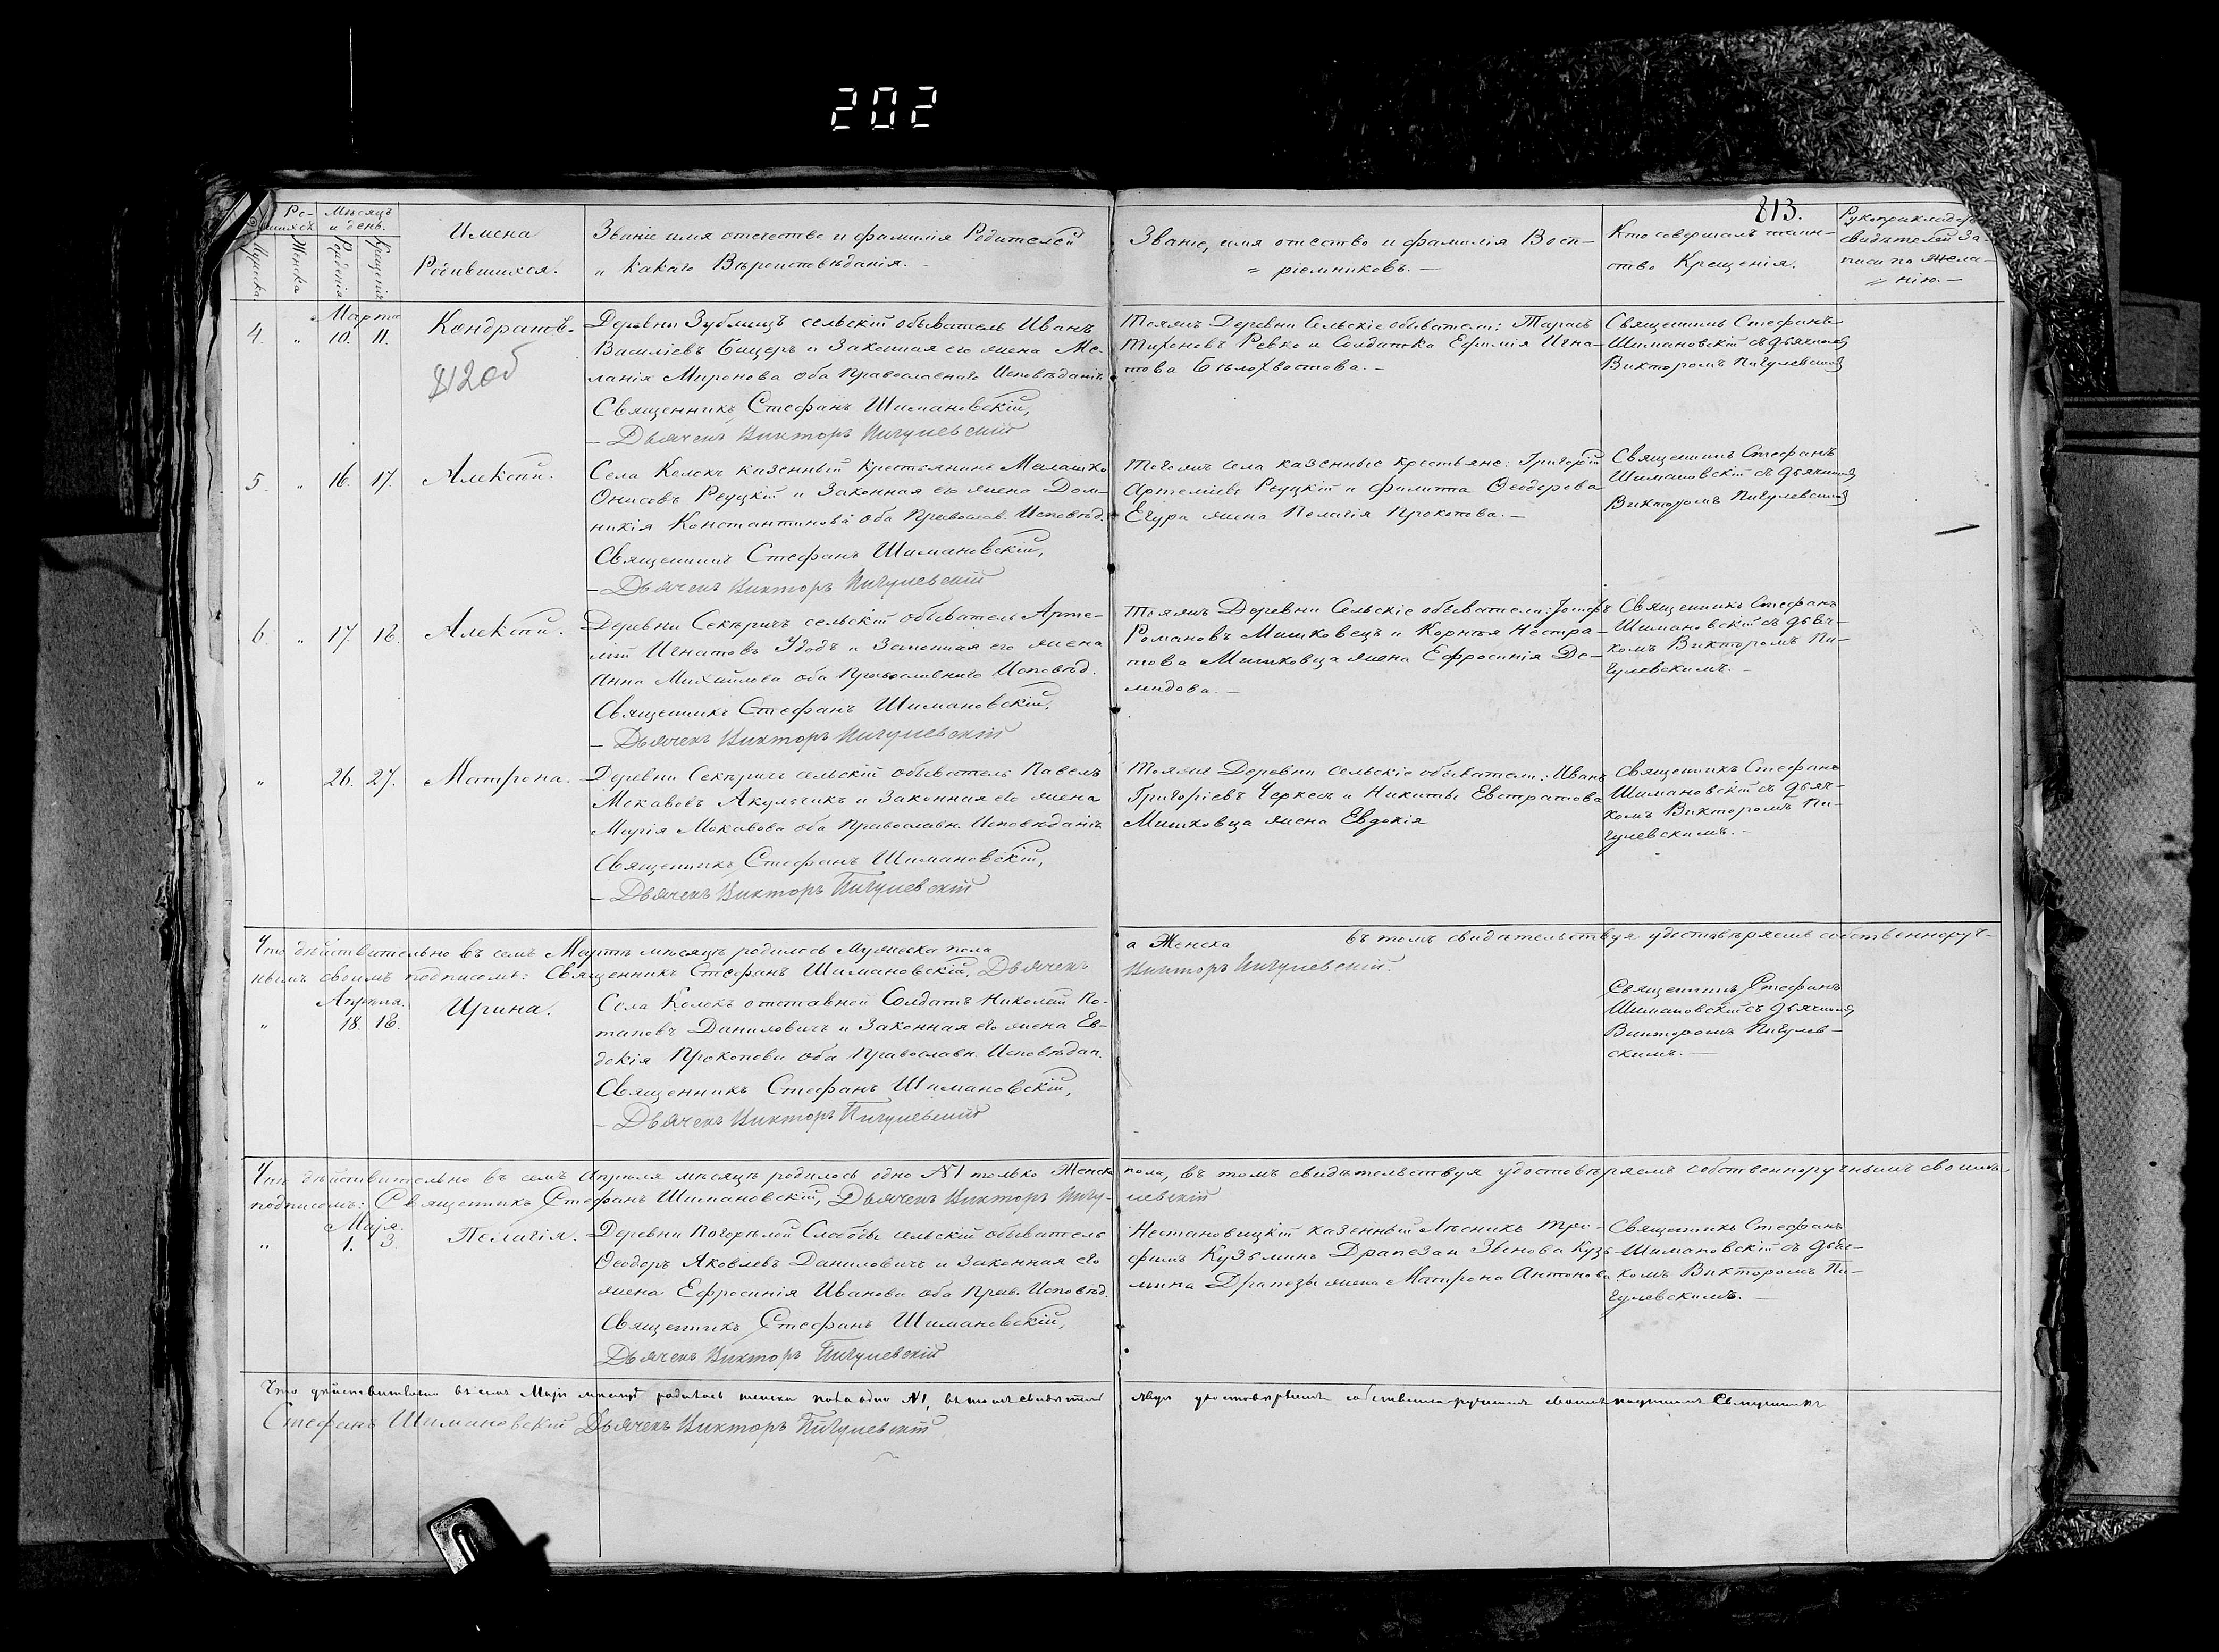 202
813.
Мѣсяцъ и день.
Мужска
Женска
Рожденія
Крещенія
Имена
Родившихся.
Званіе имя отечество и фамилія Родителей
и какаго Вѣроисповѣданія.
Званіе, имя отество и фамилія Восп-
ріемниковъ. —
Кто совершалъ таин-
ство Крещенія.
свидѣтелей за-
писи по жела-
нію. —
Марта
4. " 10. 11. Кондратъ.
812об
Деревни Зублищъ сельскій обыватель Иванъ
Василіевъ Бищеръ и Законная его жена Ме-
ланія Миронова оба Православнаго Исповѣданія
Священникъ Стефанъ Шимановскій,
— Дьячекъ Викторъ Пигулевскій
Тояжъ Деревни Сельскіе обыватели: Тарасъ
Тихоновъ Ревко и Солдатка Ефимія Игна-
това Бѣлохвостова. —
Священникъ Стефанъ
Шимановскій съ дьячкомъ
Викторомъ Пигулевскимъ
5. " 16. 17. Алексѣй.
Села Колокъ казенный крестьянинъ Малашко
Онисовъ Реуцкій и Законная его жена Дом-
никія Константинова оба Православ. Исповѣд.
Священникъ Стефанъ Шимановскій,
— Дьячекъ Викторъ Пигулевскій
Тогожъ села казенные крестьяне: Григорій
Артеміевъ Реуцкій и Филиппа Ѳеодорова
Егура жена Пелагія Прокопова. —
Священникъ Стефанъ
Шимановскій съ дьячкомъ
Викторомъ Пигулевскимъ
6. " 17. 18. Алексѣй.
Деревни Секѣричъ сельскій обыватель Арте-
мій Игнатовъ Удодъ и Законная его жена
Анна Михайлова оба Православнаго Исповѣд.
Священникъ Стефанъ Шимановскій,
— Дьячекъ Викторъ Пигулевскій
Тояжъ Деревни Сельскіе обыватели: Іосифъ
Романовъ Мишковецъ и Корнѣя Нестра-
това Мишковца жена Ефросинія Де-
мидова. —
Священникъ Стефанъ
Шимановскій съ дьяч-
комъ Викторомъ Пи-
гулевскимъ. —
" 26. 27. Матрона.
Деревни Секѣричъ сельскій обыватель Павелъ
Мокавовъ Акульчикъ и Законная его жена
Марія Мокавова оба Православн. Исповѣданія
Священникъ Стефанъ Шимановскій,
— Дьячекъ Викторъ Пигулевскій
Тояжъ Деревни сельскіе обыватели: Иванъ
Григоріевъ Черкесъ и Никиты Евстратова
Мишковца жена Евдокія
Священникъ Стефанъ
Шимановскій съ дьяч-
комъ Викторомъ Пи-
гулевскимъ. —
Что дѣйствительно въ семъ Мартѣ мѣсяцѣ родилось Мужеска пола а Женска въ томъ свидѣтельствуя удостовѣряемъ собственноруч-
нымъ своимъ подписомъ: Священникъ Стефанъ Шимановскій, Дьячекъ Викторъ Пигулевскій.
Апрѣля
" 18. 18. Ирина.
Села Колокъ отставной Солдатъ Николай По-
таповъ Даниловичъ и Законная его жена Ев-
докія Прокопова оба Православн. Исповѣдан.
Священникъ Стефанъ Шимановскій,
— Дьячекъ Викторъ Пигулевскій
Священникъ Стефанъ
Шимановскій съ дьячкомъ
Викторомъ Пигулев-
скимъ. —
Что дѣйствительно въ семъ Апрѣля мѣсяцѣ родилось одно №1 только Женска пола, въ томъ свидѣтельствуя удостовѣряемъ собственноручнымъ своимъ
подписомъ: Священникъ Стефанъ Шимановскій, Дьячекъ Викторъ Пигу-левскій
Маія.
" 1. 3. Пелагія.
Деревни Погорѣлой Слободы сельскій обыватель
Ѳеодоръ Яковлевъ Даниловичъ и Законная его
жена Ефросинія Иванова оба Прав. Исповѣд.
Священникъ Стефанъ Шимановскій,
Дьячекъ Викторъ Пигулевскій
казенный Лѣсникъ Тро-
фимъ Кузьминъ Драпеза и Кузь-
мина Драпезы жена Матрона Антонова
Священникъ Стефанъ
Шимановскій съ дьяч-
комъ Викторомъ Пи-
гулевскимъ. —
Что дѣйствительно въ семъ Маіи мѣсяцѣ родилось женска пола одно №1, въ томъ свидѣтель ствуя удостовѣряемъ собственноручнымъ своимъ подписомъ Священникъ
Стефанъ Шимановскій Дьячекъ Викторъ Пигулевскій